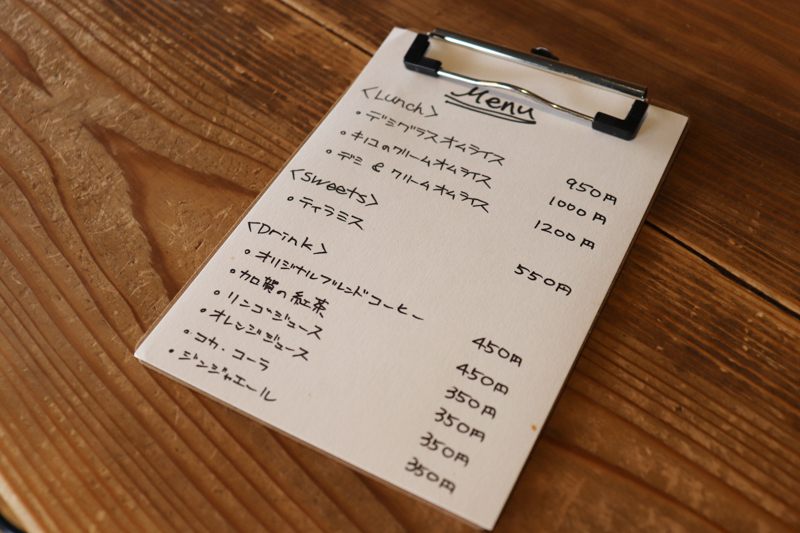 Menu
<Lunch>
・デミグラスオムライス 950円
・キノコのクリームオムライス 1000円
・デミ & クリームオムライス 1200円
<sweets>
・ティラミス 550円
<Drink>
・オリジナルブレンドコーヒー 450円
・加賀の紅茶 450円
・リンゴジュース 350円
・オレンジジュース 350円
・コカ・コーラ 350円
・ジンジャエール 350円